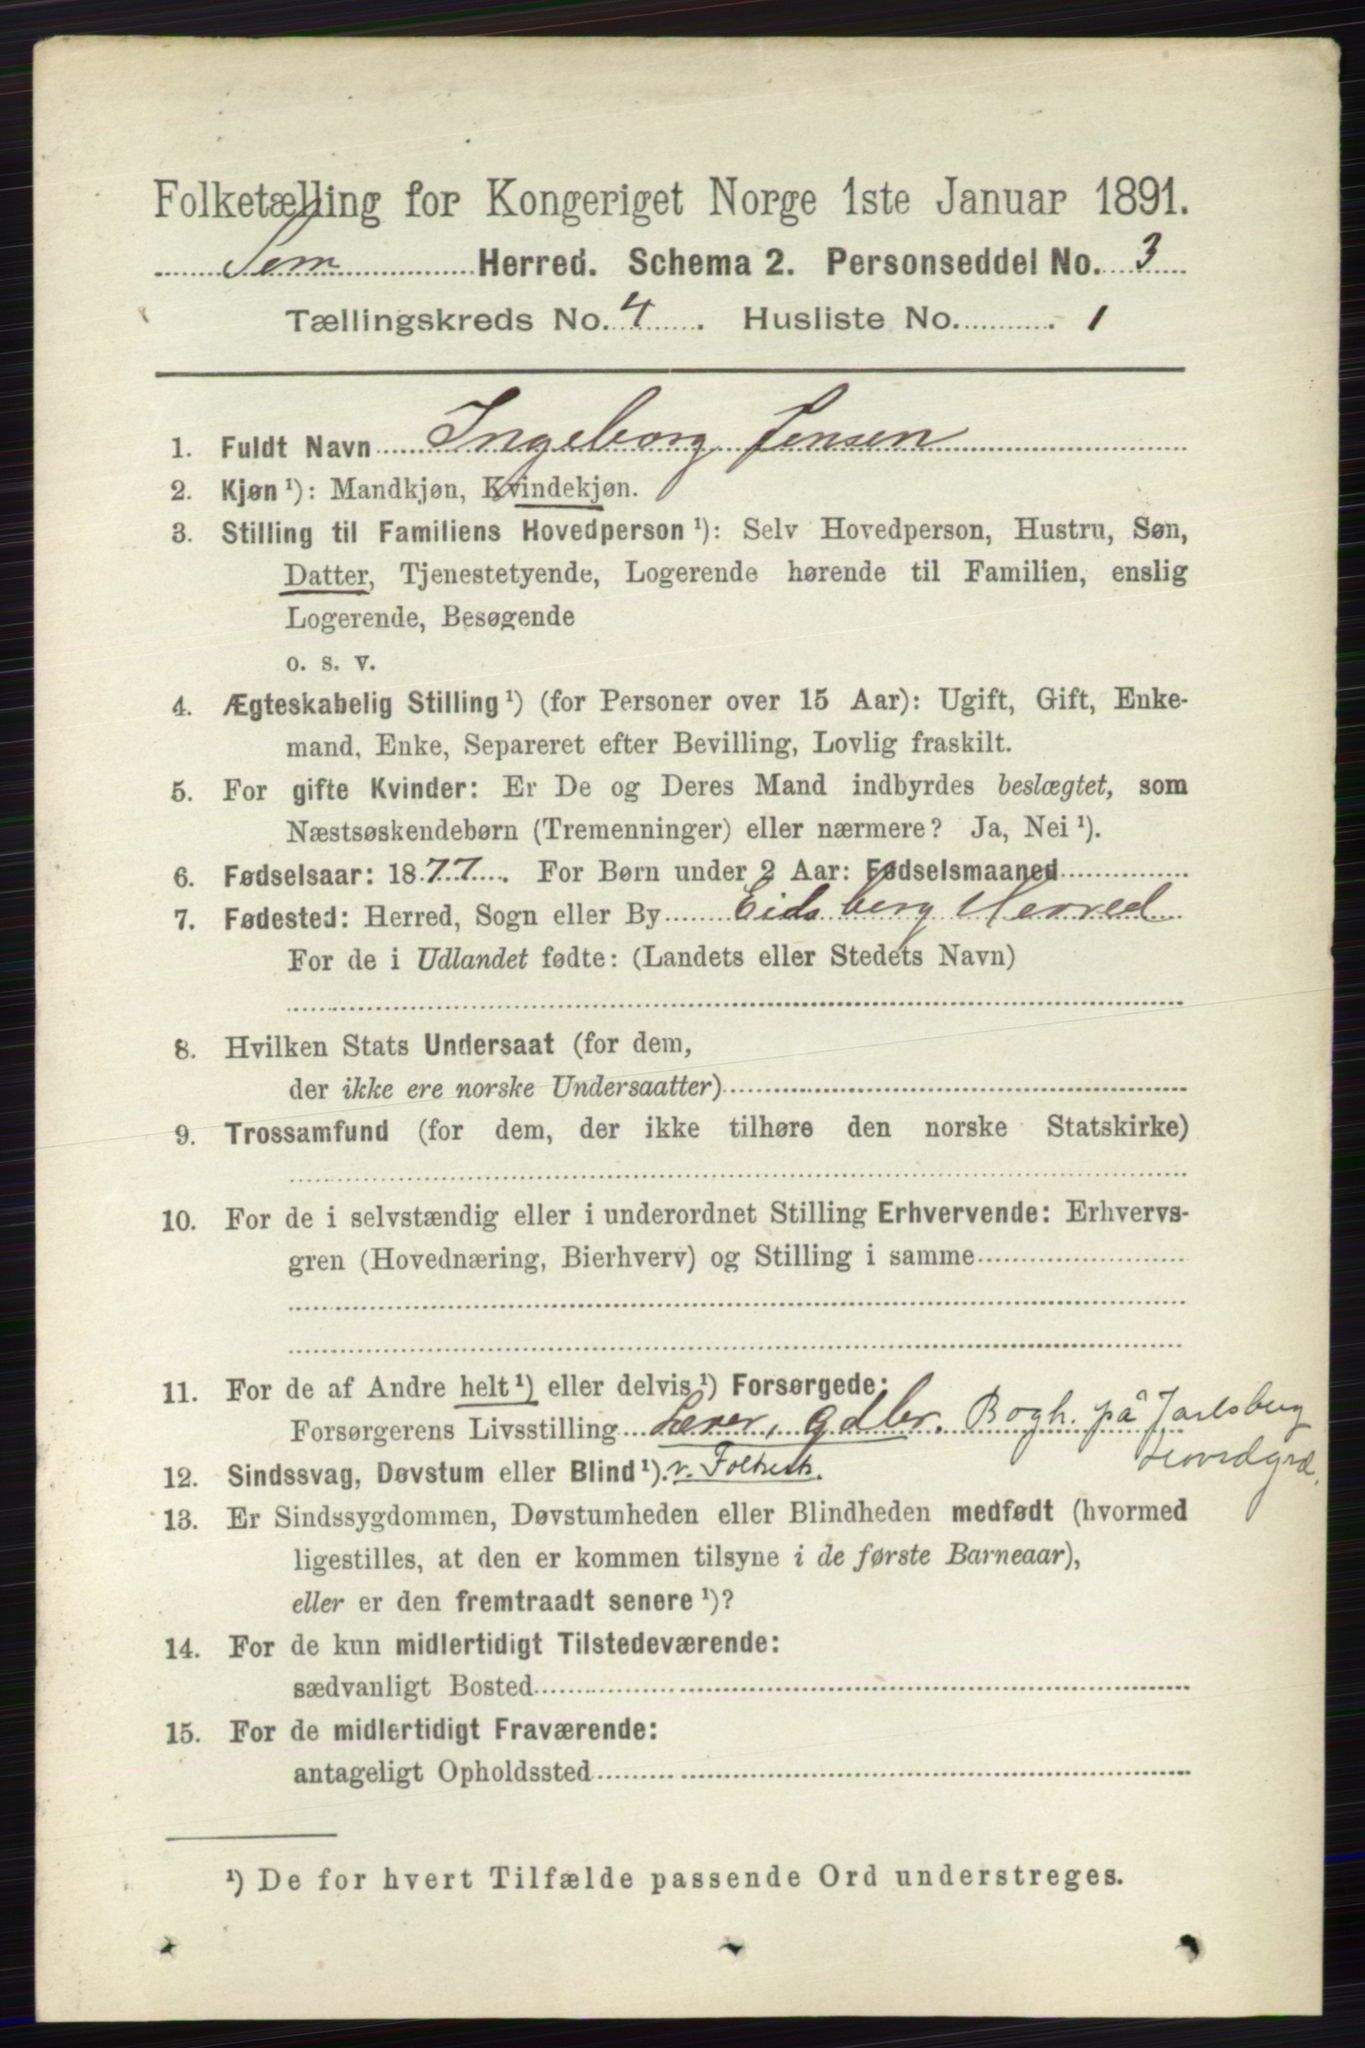 Folketælling for Kongeriget Norge 1ste Januar 1891.
Sem Herred. Schema 2. Personseddel No. 3
Tællingskreds No. 4. Husliste No. 1
1. Fuldt Navn Ingeborg Jensen
2. Kjøn¹): Mandkjøn, Kvindekjøn.
3. Stilling til Familiens Hovedperson¹): Selv Hovedperson, Hustru, Søn,
Datter, Tjenestetyende, Logerende hørende til Familien, enslig
Logerende, Besøgende
o. s. v.
4. Ægteskabelig Stilling¹) (for Personer over 15 Aar): Ugift, Gift, Enke-
mand, Enke, Separeret efter Bevilling, Lovlig fraskilt.
5. For gifte Kvinder: Er De og Deres Mand indbyrdes beslægtet, som
Næstsøskendebørn (Tremenninger) eller nærmere? Ja, Nei¹).
6. Fødselsaar: 1877. For Børn under 2 Aar: Fødselsmaaned
7. Fødested: Herred, Sogn eller By Eidsberg Herred
For de i Udlandet fødte: (Landets eller Stedets Navn)
8. Hvilken Stats Undersaat (for dem,
der ikke ere norske Undersaatter)
9. Trossamfund (for dem, der ikke tilhøre den norske Statskirke)
10. For de i selvstændig eller i underordnet Stilling Erhvervende: Erhvervs-
gren (Hovednæring, Bierhverv) og Stilling i samme
11. For de af Andre helt¹) eller delvis¹) Forsørgede:
Forsørgerens Livsstilling Lærer, Gdbr. Bogh. på Jarlsberg
12. Sindssvag, Døvstum eller Blind¹). v. Hovedgrd.
13. Er Sindssygdommen, Døvstumheden eller Blindheden medfødt (hvormed
ligestilles, at den er kommen tilsyne i de første Barneaar),
eller er den fremtraadt senere¹)?
14. For de kun midlertidigt Tilstedeværende:
sædvanligt Bosted
15. For de midlertidigt Fraværende:
antageligt Opholdssted
¹) De for hvert Tilfælde passende Ord understreges.